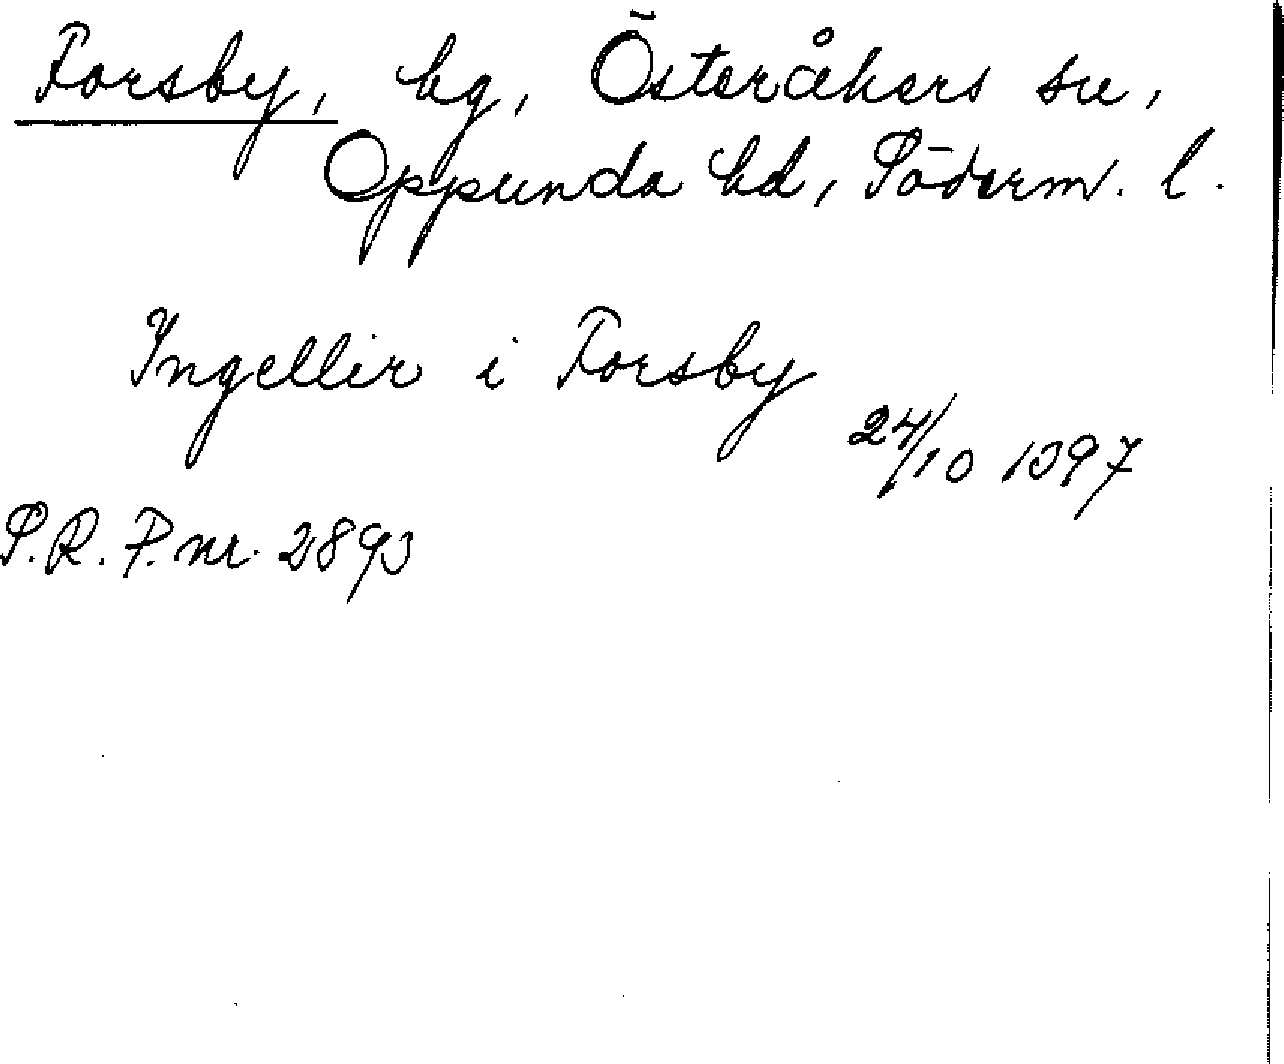 Forsby, by, Österåkers sn,
Oppunda hd, Söderm. l.
Ingellir i Forsby
24/10 1397
S.R.P. nr. 2893